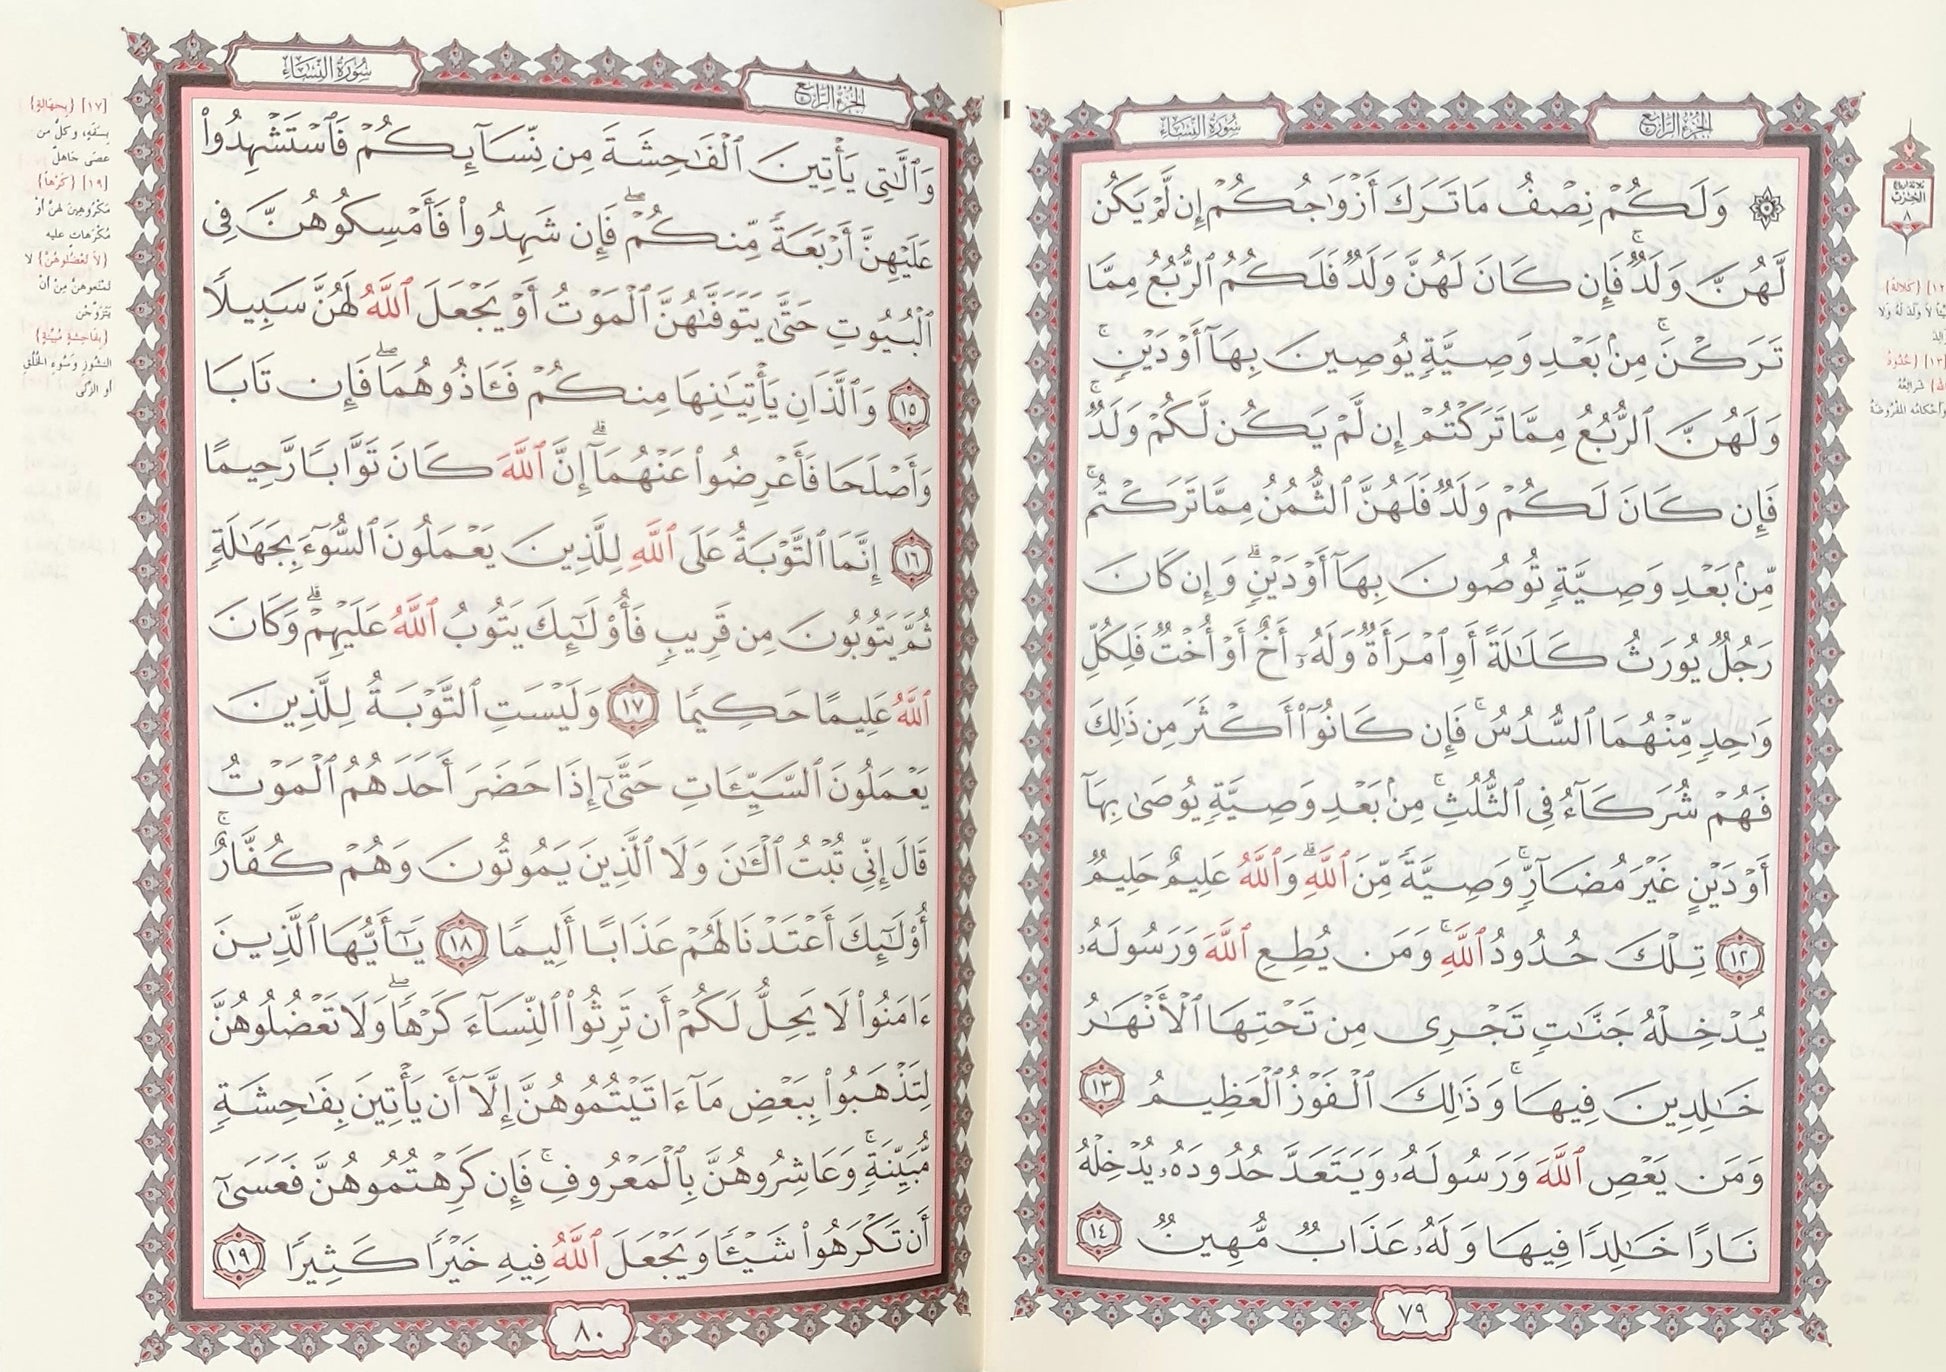 سُورَةُ النِّسَاءِ
الجُزْءُ الرَّابِعُ
ثلاثة أرباع
الحِزْبُ
٨
۞ وَلَكُمْ نِصْفُ مَا تَرَكَ أَزْوَاجُكُمْ إِن لَّمْ يَكُن
لَّهُنَّ وَلَدٌ ۚ فَإِن كَانَ لَهُنَّ وَلَدٌ فَلَكُمُ ٱلرُّبُعُ مِمَّا
تَرَكْنَ ۚ مِنۢ بَعْدِ وَصِيَّةٍ يُوصِينَ بِهَآ أَوْ دَيْنٍ ۚ
وَلَهُنَّ ٱلرُّبُعُ مِمَّا تَرَكْتُمْ إِن لَّمْ يَكُن لَّكُمْ وَلَدٌ ۚ
فَإِن كَانَ لَكُمْ وَلَدٌ فَلَهُنَّ ٱلثُّمُنُ مِمَّا تَرَكْتُم ۚ
مِّنۢ بَعْدِ وَصِيَّةٍ تُوصُونَ بِهَآ أَوْ دَيْنٍ ۗ وَإِن كَانَ
رَجُلٌ يُورَثُ كَلَٰلَةً أَوِ ٱمْرَأَةٌ وَلَهُۥٓ أَخٌ أَوْ أُخْتٌ فَلِكُلِّ
وَٰحِدٍ مِّنْهُمَا ٱلسُّدُسُ ۚ فَإِن كَانُوٓا۟ أَكْثَرَ مِن ذَٰلِكَ
فَهُمْ شُرَكَآءُ فِى ٱلثُّلُثِ ۚ مِنۢ بَعْدِ وَصِيَّةٍ يُوصَىٰ بِهَآ
أَوْ دَيْنٍ غَيْرَ مُضَآرٍّ ۚ وَصِيَّةً مِّنَ ٱللَّهِ ۗ وَٱللَّهُ عَلِيمٌ حَلِيمٌ
١٢ تِلْكَ حُدُودُ ٱللَّهِ ۚ وَمَن يُطِعِ ٱللَّهَ وَرَسُولَهُۥ
يُدْخِلْهُ جَنَّٰتٍ تَجْرِى مِن تَحْتِهَا ٱلْأَنْهَٰرُ
خَٰلِدِينَ فِيهَا ۚ وَذَٰلِكَ ٱلْفَوْزُ ٱلْعَظِيمُ ١٣
وَمَن يَعْصِ ٱللَّهَ وَرَسُولَهُۥ وَيَتَعَدَّ حُدُودَهُۥ يُدْخِلْهُ
نَارًا خَٰلِدًا فِيهَا وَلَهُۥ عَذَابٌ مُّهِينٌ ١٤
٧٩
{كَلَالَةً}
لَا وَلَدَ لَهُ وَلَا
[١٣] {حُدُودُ
شَرَائِعُهُ
وَأَحْكَامُهُ المَفْرُوضَةُ
سُورَةُ النِّسَاءِ
الجُزْءُ الرَّابِعُ
وَٱلَّٰتِى يَأْتِينَ ٱلْفَٰحِشَةَ مِن نِّسَآئِكُمْ فَٱسْتَشْهِدُوا۟
عَلَيْهِنَّ أَرْبَعَةً مِّنكُمْ ۖ فَإِن شَهِدُوا۟ فَأَمْسِكُوهُنَّ فِى
ٱلْبُيُوتِ حَتَّىٰ يَتَوَفَّىٰهُنَّ ٱلْمَوْتُ أَوْ يَجْعَلَ ٱللَّهُ لَهُنَّ سَبِيلًا
١٥ وَٱلَّذَانِ يَأْتِيَٰنِهَا مِنكُمْ فَـَٔاذُوهُمَا ۖ فَإِن تَابَا
وَأَصْلَحَا فَأَعْرِضُوا۟ عَنْهُمَآ ۗ إِنَّ ٱللَّهَ كَانَ تَوَّابًا رَّحِيمًا
١٦ إِنَّمَا ٱلتَّوْبَةُ عَلَى ٱللَّهِ لِلَّذِينَ يَعْمَلُونَ ٱلسُّوٓءَ بِجَهَٰلَةٍ
ثُمَّ يَتُوبُونَ مِن قَرِيبٍ فَأُو۟لَٰٓئِكَ يَتُوبُ ٱللَّهُ عَلَيْهِمْ ۗ وَكَانَ
ٱللَّهُ عَلِيمًا حَكِيمًا ١٧ وَلَيْسَتِ ٱلتَّوْبَةُ لِلَّذِينَ
يَعْمَلُونَ ٱلسَّيِّـَٔاتِ حَتَّىٰٓ إِذَا حَضَرَ أَحَدَهُمُ ٱلْمَوْتُ
قَالَ إِنِّى تُبْتُ ٱلْـَٰٔنَ وَلَا ٱلَّذِينَ يَمُوتُونَ وَهُمْ كُفَّارٌ ۚ
أُو۟لَٰٓئِكَ أَعْتَدْنَا لَهُمْ عَذَابًا أَلِيمًا ١٨ يَٰٓأَيُّهَا ٱلَّذِينَ
ءَامَنُوا۟ لَا يَحِلُّ لَكُمْ أَن تَرِثُوا۟ ٱلنِّسَآءَ كَرْهًا ۖ وَلَا تَعْضُلُوهُنَّ
لِتَذْهَبُوا۟ بِبَعْضِ مَآ ءَاتَيْتُمُوهُنَّ إِلَّآ أَن يَأْتِينَ بِفَٰحِشَةٍ
مُّبَيِّنَةٍ ۚ وَعَاشِرُوهُنَّ بِٱلْمَعْرُوفِ ۚ فَإِن كَرِهْتُمُوهُنَّ فَعَسَىٰٓ
أَن تَكْرَهُوا۟ شَيْـًٔا وَيَجْعَلَ ٱللَّهُ فِيهِ خَيْرًا كَثِيرًا ١٩
٨٠
[١٧] {بِجَهَالَةٍ}
بِسَفَهٍ، وكلُّ من
عصَى جَاهِلٌ
[١٩] {كَرْهاً}
مَكْرُوهِينَ لهنَّ أوْ
مُكْرَهَاتٍ عليه
{لَا تَعْضُلُوهُنَّ} لا
تَمْنَعُوهنَّ مِنْ أنْ
يَتَزَوَّجْنَ
{بِفَاحِشَةٍ مُبَيِّنَةٍ}
النشوزِ وسُوءِ الخُلُقِ
أو الزِّنَى